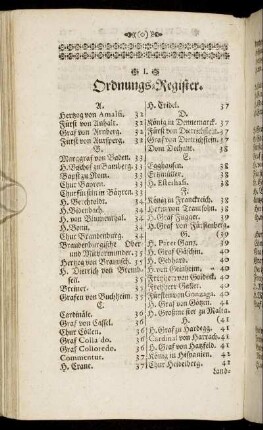 (o)
I.
Ordnungs-Register.
A.
Hertzog von Amalfi. 32
Fürst von Anhalt. 32
Graf von Arnberg. 32
Fürst von Aursperg. 33
B.
Marggraf von Baden. 33
H. Bischof zu Bamberg. 33
Bapst zu Rom. 33
Chur Bayren. 33
Churfürstin in Bayren. 33
H. 33
H. Bidenbach. 34
H. von Blumenthal. 34
H. Bonn. 34
Chur Brandenburg. 34
Brandenburgische Ober
und 36
Hertzog von Braunsch. 35
H. Dietrich von Bremb-
sen. 35
Breiner. 35
Grafen von Buchheim. 35
C.
Cardinäle. 36
Graf von Cassel. 36
Chur Cöllen. 36
Graf Collado. 36
Graf Colloredo. 36
Commentur. 37
H. Crane. 37
H. Cridel. 37
D.
König in Denemarck. 37
Fürst von Dietrichstein. 37
Graf von Dietrichstein. 37
Dom Dechant. 38
E.
Egghausen. 38
38
H. Esterhasi. 38
F.
König in Franckreich. 38
Herr von 38
H. Graf Fugger. 39
H. Graf von Fürstenberg.
G. (39
H. Pater Gans. 39
H. Graf Gäschin. 40
H. Gebhard. 40
H. von Geilheim. 40
Freyherr von 40
Freyherr Galler. 40
Fürstin von Gonzaga. 40
H. Graf von Götzen. 41
H. Großmeister zu Malta.
H. (41
H. Graf zu Hardegg. 41
Cardinal von Harrach. 41
H. Graf von Hatzfeld. 41
König in Hispanien. 41
Chur Heidelberg. 41
Land-